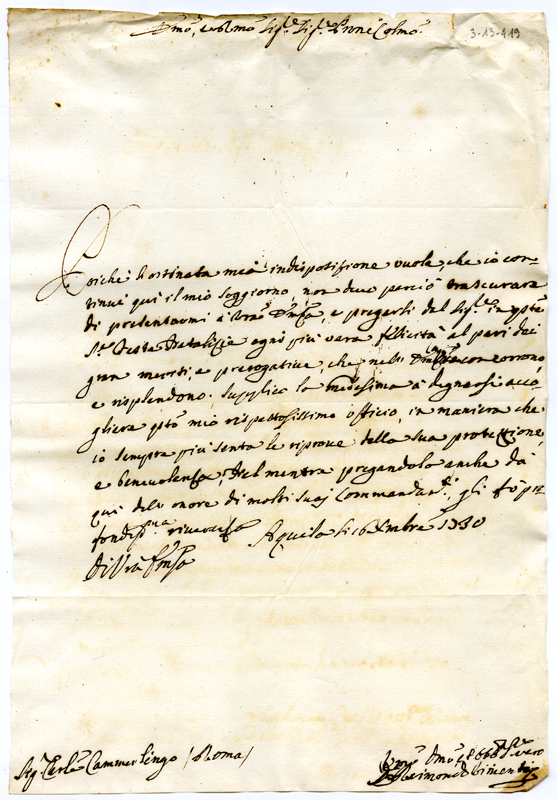 3-13-419
Emo, e Rmo Sig.re Sig.re Prne Colmo
Poichè l'ostinata mia indispositione vuole, che io con-
tinue quì il mio soggiorno, non devo perciò trascurare
di presentarmi à Vra Emza, e pregarli dal Sig.re in qste
S.te Feste Natalizie ogni più vera felicità al pari dei
gran meriti, e prerogative, che nell' Emza Vra concorrono,
e risplendono. Supplico la medesima à degnarsi acco-
gliere qto mio rispettosissimo officio, in maniera che
io sempre più senta le riprove della sua protettione,
e benevolenza, Nel mentre pregandola anche dà
quì dell' onore di molti suoj Commandam.ti, gli fò pro-
fondiss.ma riverenza Aquila li 16 Xmbre 1730
Di Vra Emza
Sig.r Card.le Cammerlingo / Roma /
Raimondo